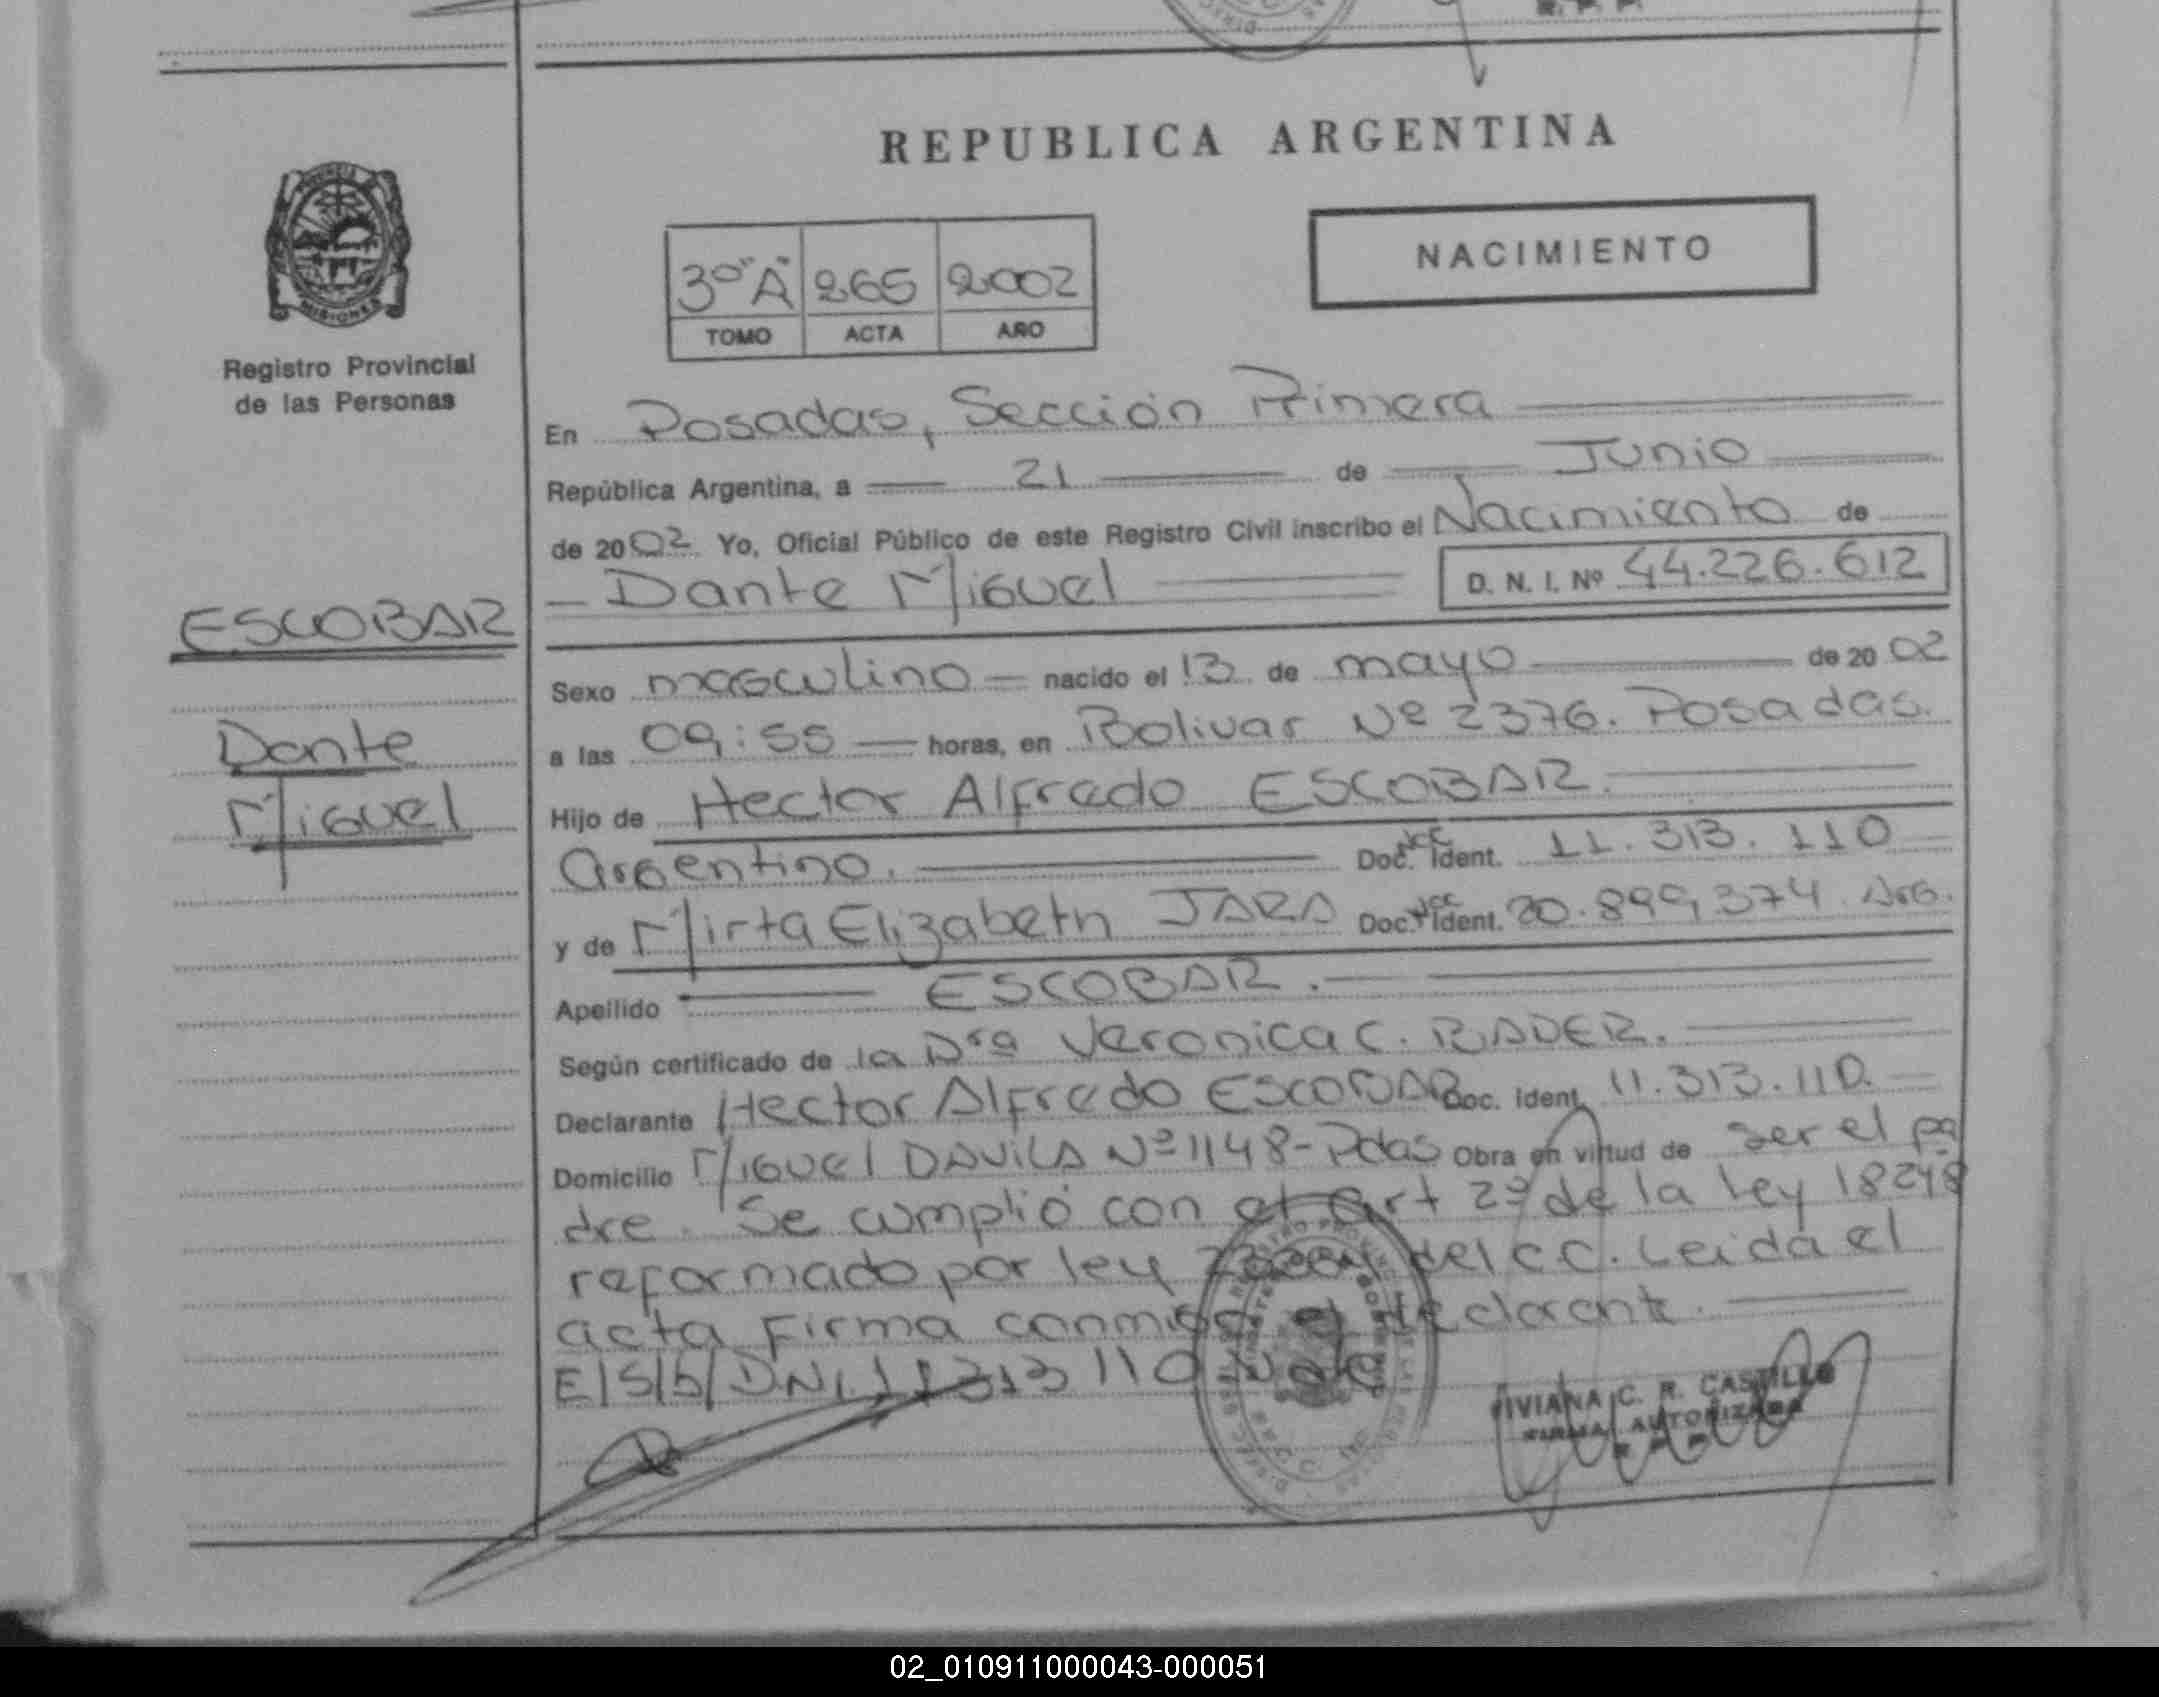 REPUBLICA ARGENTINA
NACIMIENTO
3º "A" 265 2002
TOMO ACTA AÑO
Registro Provincial
de las Personas
MISIONES
ESCOBAR
Dante
Miguel
En Posadas, Sección Primera
República Argentina, a 21 de Junio
de 2002 Yo, Oficial Público de este Registro Civil inscribo el Nacimiento de
Dante Miguel D. N. I. Nº 44.226.612
Sexo masculino nacido el 13 de mayo de 2002
a las 09:55 horas, en Bolivar Nº 2376. Posadas.
Hijo de Hector Alfredo ESCOBAR.
Argentino. Doc. Ident. 11.313.110
y de Mirta Elizabeth JARA Doc. Ident. 20.899.374 Arg.
Apellido ESCOBAR.
Según certificado de la Dra Veronica C. BADER.
Declarante Hector Alfredo ESCOBAR Doc. Ident. 11.313.110.
Domicilio Miguel DAVILA Nº 1148-Pdas Obra en virtud de ser el pa
dre. Se cumplió con el art 2º de la ley 18248
reformado por ley del CC. Leida el
acta Firma conmigo el declarante.
E/S/b/DNI. 11 313 110 Vale
VIVIANA C. R. CASTILLO
FIRMA AUTORIZADA
02_010911000043-000051